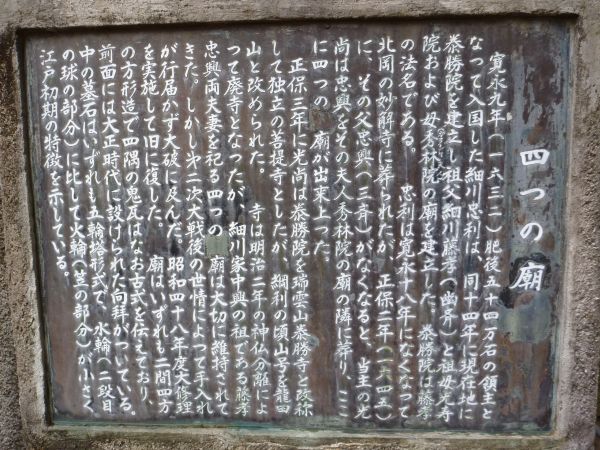 四つの廟
寛永九年(一六三二)肥後五十四万石の領主と
なって入国した細川忠利は、同十四年に現在地に
泰勝院を建立し祖父細川藤孝(幽斉)と祖母光寿
院および母秀林院の廟を建立した。泰勝院は藤孝
の法名である。 忠利は寛永十八年になくなって
北岡の妙解寺に葬られたが、正保二年(一六四五)
に、その父忠興(三斉)がなくなると、当主の光
尚は忠興をその夫人秀林院の廟の隣に葬り、ここ
に四つの 廟が出来上った。
正保三年に光尚は泰勝院を瑞雲山泰勝寺と改称
して独立の菩提寺としたが、綱利の頃山号を龍田
山と改められた。 寺は明治二年の神仏分離によ
って廃寺となったが 細川家中興の祖である藤孝
忠興両夫妻を祀る四つの 廟は大切に維持されて
きた。しかし第二次大戦後の世情によって手入れ
が行届かず大破に及んだ。昭和四十八年度大修理
を実施して旧に復した。 廟はいずれも二間四方
の方形造で四隅の鬼瓦はなお古式を伝えており、
前面には大正時代に設けられた向拝がついている。
中の墓石はいずれも五輪塔形式で、水輪(二段目
の球の部分)に比して火輪(笠の部分)が小さく
江戸初期の特徴を示している。